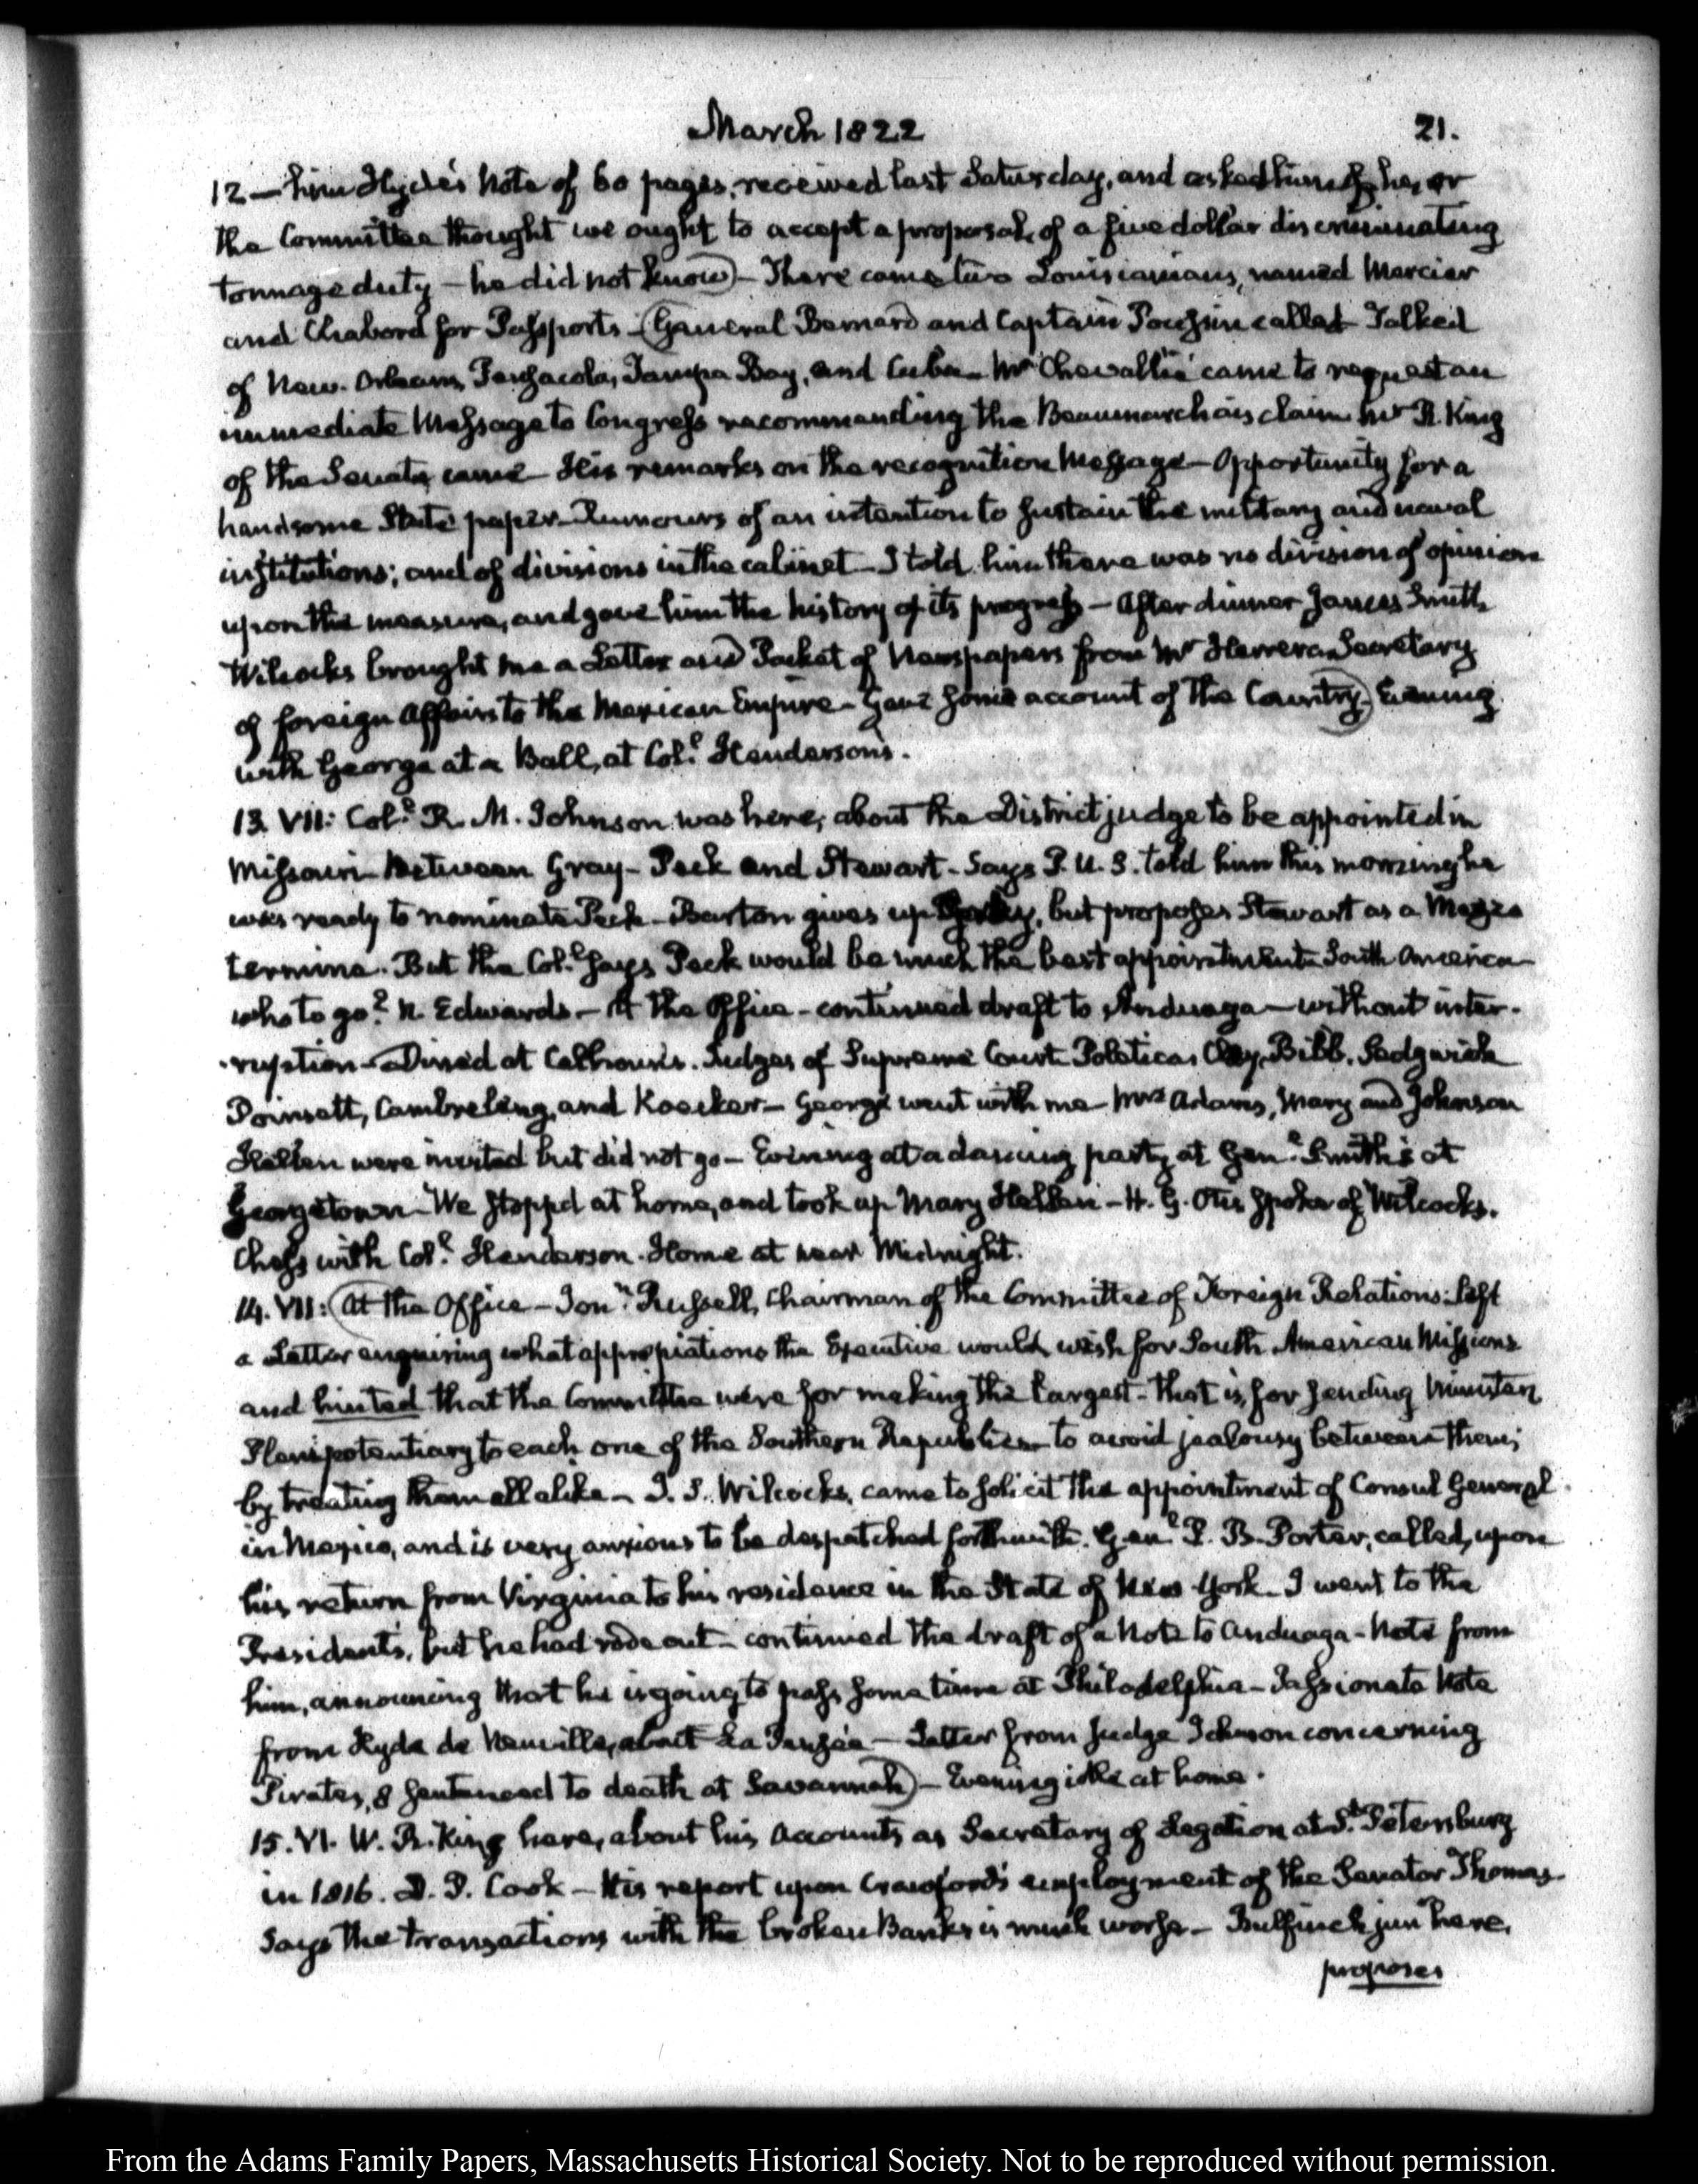 March 1822 21.
12 — him Hyde's Note of 60 pages, received last Saturday, and asked him if he, or
the Committee thought we ought to accept a proposal, of a five dollar discriminating
tonnage duty — he did not know) — There came two Louisianians, named Mercier
and Chabord for Passports — (General Bernard and Captain Poussin called Talked
of New-Orleans, Pensacola, Tampa Bay, and Cuba — Mr Chevallié came to request an
immediate Message to Congress recommending the Beaumarchais claim Mr R. King
of the Senate, came — His remarks on the recognition Message — Opportunity for a
handsome State paper — Rumours of an intention to sustain the military and naval
institutions; and of divisions in the cabinet — I told him there was no division of opinion
upon the measure, and gave him the history of its progress — After dinner James Smith
Wilcocks brought me a Letter and Packet of Newspapers from Mr Herrera Secretary
of foreign Affairs to the Mexican Empire — Gave some account of the Country) Evening
with George at a Ball, at Coll. Henderson's.
13. VII: Coll. R. M. Johnson was here, about the District judge to be appointed in
Missouri — between Gray — Peck and Stewart — Says P. U. S. told him this morning he
was ready to nominate Peck — Barton gives up but proposes Stewart as a Mezzo
termine. But the Coll. says Peck would be much the best appointment — South America
who to go? N. Edwards — At the Office — continued draft to Anduaga — without inter-
-ruption — Dined at Calhoun's. Judges of Supreme Court Poletica, Clay, Bibb, Sedgwick
Poinsett, Cambreleng, and Koecker — George went with me — Mrs Adams, Mary and Johnson
Hellen were invited but did not go — Evening at a dancing party, at Genl. Smith's at
Georgetown — We stopped at home, and took up Mary Hellen — H. G. Otis spoke of Wilcocks.
Chess with Coll. Henderson. Home at near Midnight.
14. VII: (At the Office — Jonn. Russell, Chairman of the Committee of Foreign Relations: left
a Letter enquiring what appropriations the Executive would wish for South American Missions
and hinted that the Committee were for making the largest — that is, for sending Ministers
Plenipotentiary to each one of the Southern Republics — to avoid jealousy between them;
by treating them all alike — J. S. Wilcocks, came to solicit the appointment of Consul General
in Mexico, and is very anxious to be despatched forthwith. Genl. P. B. Porter, called, upon
his return from Virginia to his residence in the State of New York — I went to the
Presidents, but he had rode out — continued the draft of a Note to Anduaga — Note from
him, announcing that he is going to pass some time at Philadelphia — Passionate Note
from Hyde de Neuville, about La Pensée — Letter from Judge Johnson concerning
Pirates, 8 sentenced to death at Savannah) — Evening idle at home.
15. VI. W. R. King here, about his Accounts as Secretary of Legation at St. Petersburg
in 1816. D. P. Cook — His report upon Crawford's employment of the Senator Thomas.
Says the transactions with the broken Banks is much worse — Bulfinch junr here,
proposes
From the Adams Family Papers, Massachusetts Historical Society. Not to be reproduced without permission.